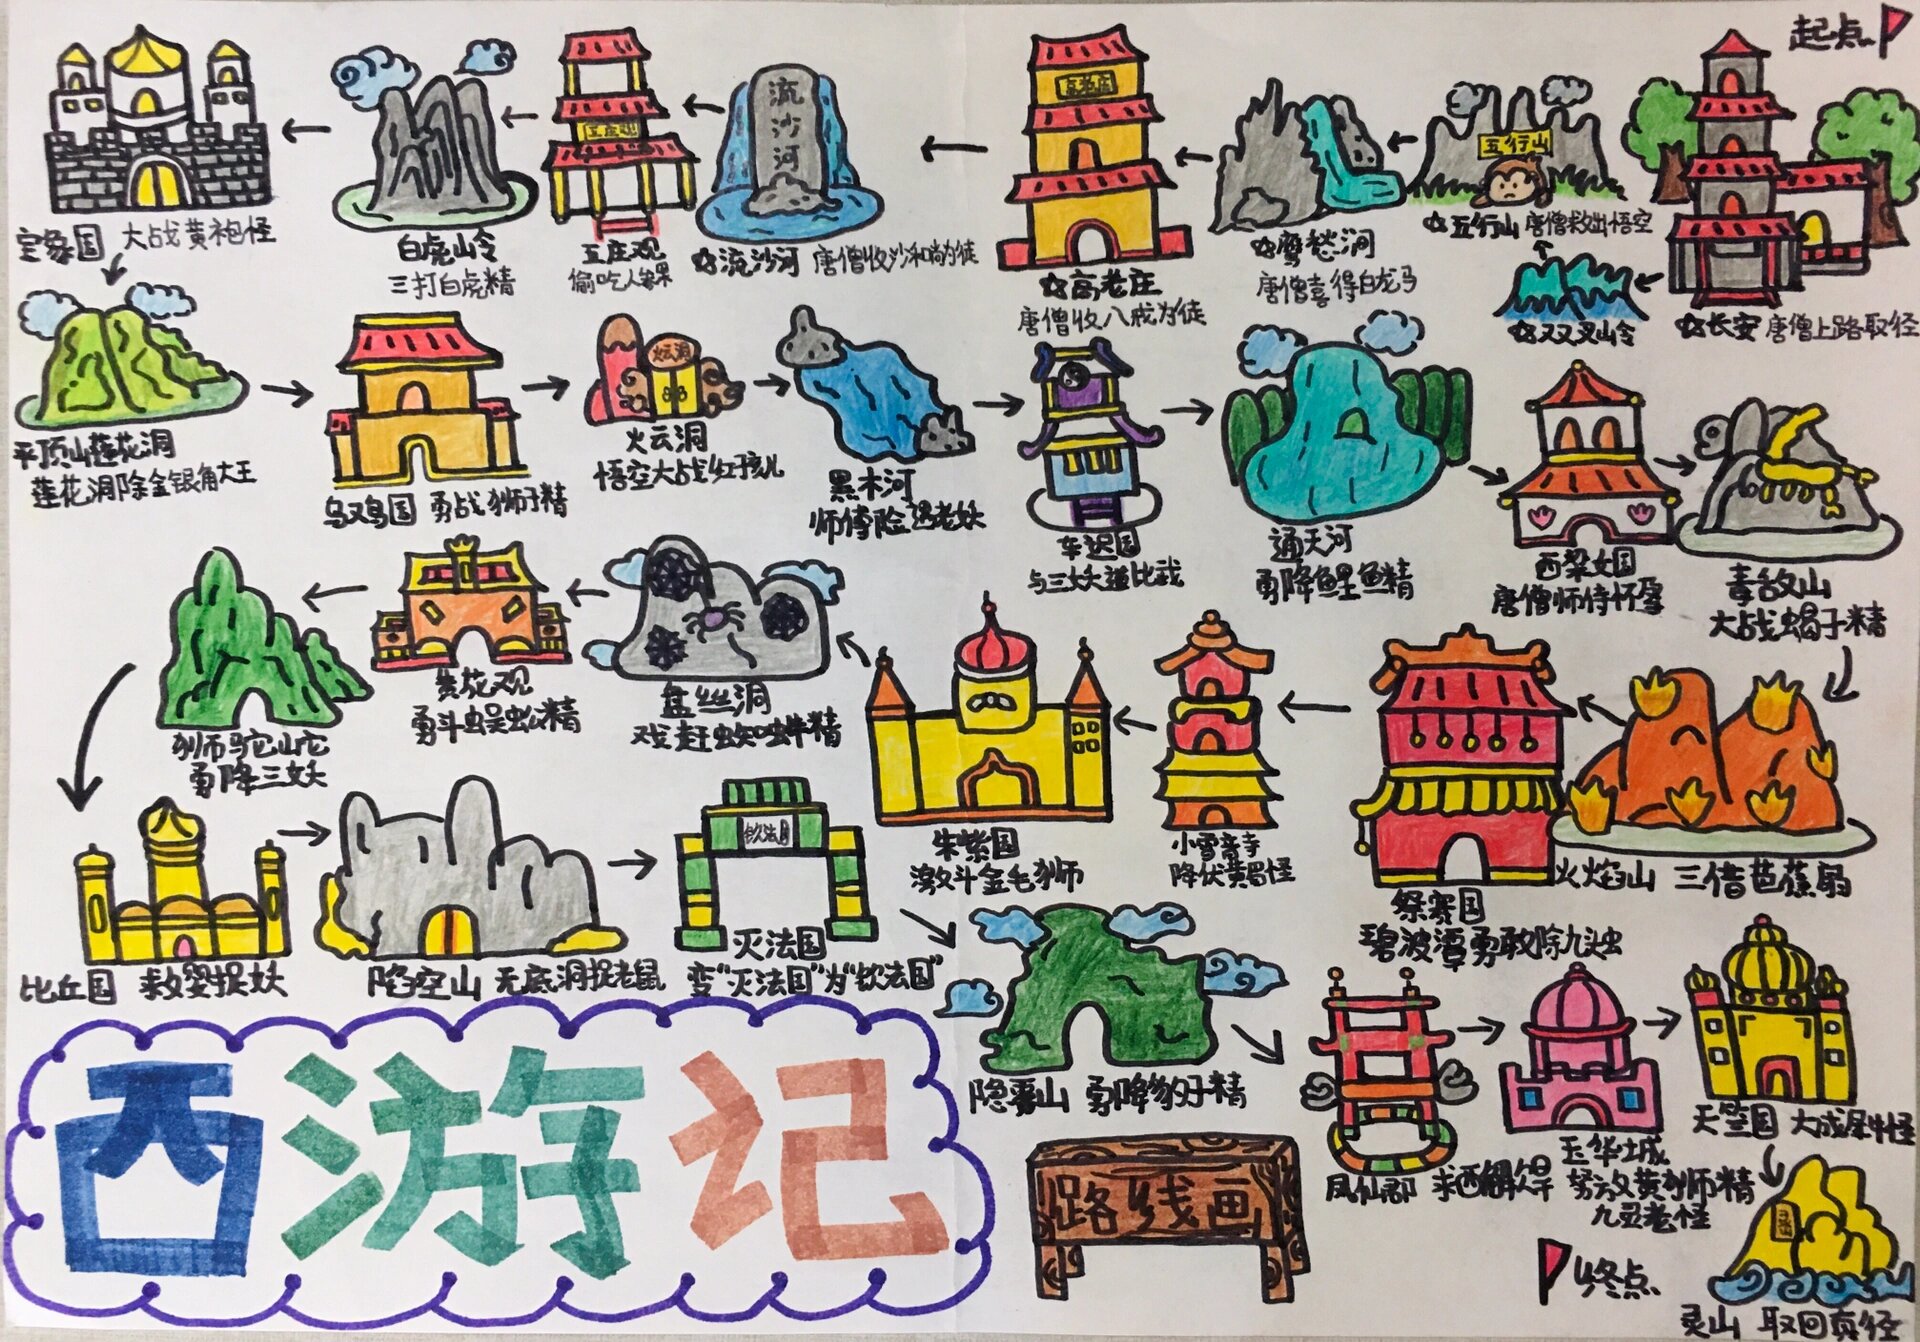 起点
长安 唐僧上路取经
双叉山令
五行山
五行山 唐僧救出悟空
鹰愁涧
唐僧喜得白龙马
高老庄
高老庄
唐僧收八戒为徒
流沙河
流沙河 唐僧收沙和尚为徒
五庄观
五庄观
偷吃人参果
白虎山令
三打白虎精
宝象国 大战黄袍怪
平顶山莲花洞
莲花洞除金银角大王
乌鸡国 勇战狮子精
火云洞
火云洞
悟空大战红孩儿
黑水河
师傅险遇老妖
车迟国
与三妖道比武
通天河
勇降鲤鱼精
西梁女国
唐僧师侍怀孕
毒敌山
大战蝎子精
火焰山 三借芭蕉扇
祭赛国
碧波潭勇敢除九头虫
小雷音寺
降伏黄眉怪
朱紫国
激斗金毛狮
盘丝洞
戏赶蜘蛛精
黄花观
勇斗蜈蚣精
狮驼山它
勇降三妖
比丘国 救婴捉妖
陷空山 无底洞捉老鼠
钦法国
灭法国
变“灭法国”为“钦法国”
隐雾山 勇降豹子精
凤仙郡 求西解
玉华城
努放黄狮精
九灵老怪
天竺国 大成犀牛怪
灵山 取回真经
终点
西游记
路线画